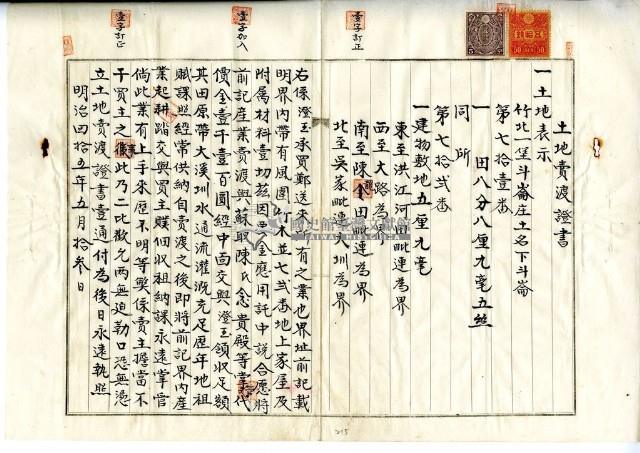 土地賣渡證書
一土地表示
竹北一堡斗崙庄土名下斗崙
第七拾壹番
一 田八分八厘九毫五絲
同所
第七拾貳番
一建物敷地五厘九毫
東至洪江河田毗連為界
西至大路為界
南至陳 田毗連為界
北至吳家毗連大圳為界
右係澄玉承買鄭送來 有之業也界址前記載
明界內帶有風圍竹木並七貳番地上家屋及
附屬材料壹切茲因要金應用託中說合應將
前記產業賣渡與蘇 陳氏念貴殿等 代
價金壹千壹百圓經中面交與澄玉領收足額
其田原帶大溪圳水通流灌溉充足歷年地租
賦課照經常供納自賣渡之後即將前記界內產
業起耕踏交與買主贌佃收租納課永遠掌管
倘此業有上手來歷不明等槩係賣主擔當不
干買主之事此乃二比歡允兩無迫勒口恐無憑
立土地賣渡證書壹通付為後日永遠執照
明治四拾五年五月拾參日
壹字訂正
壹字加入
壹字訂正